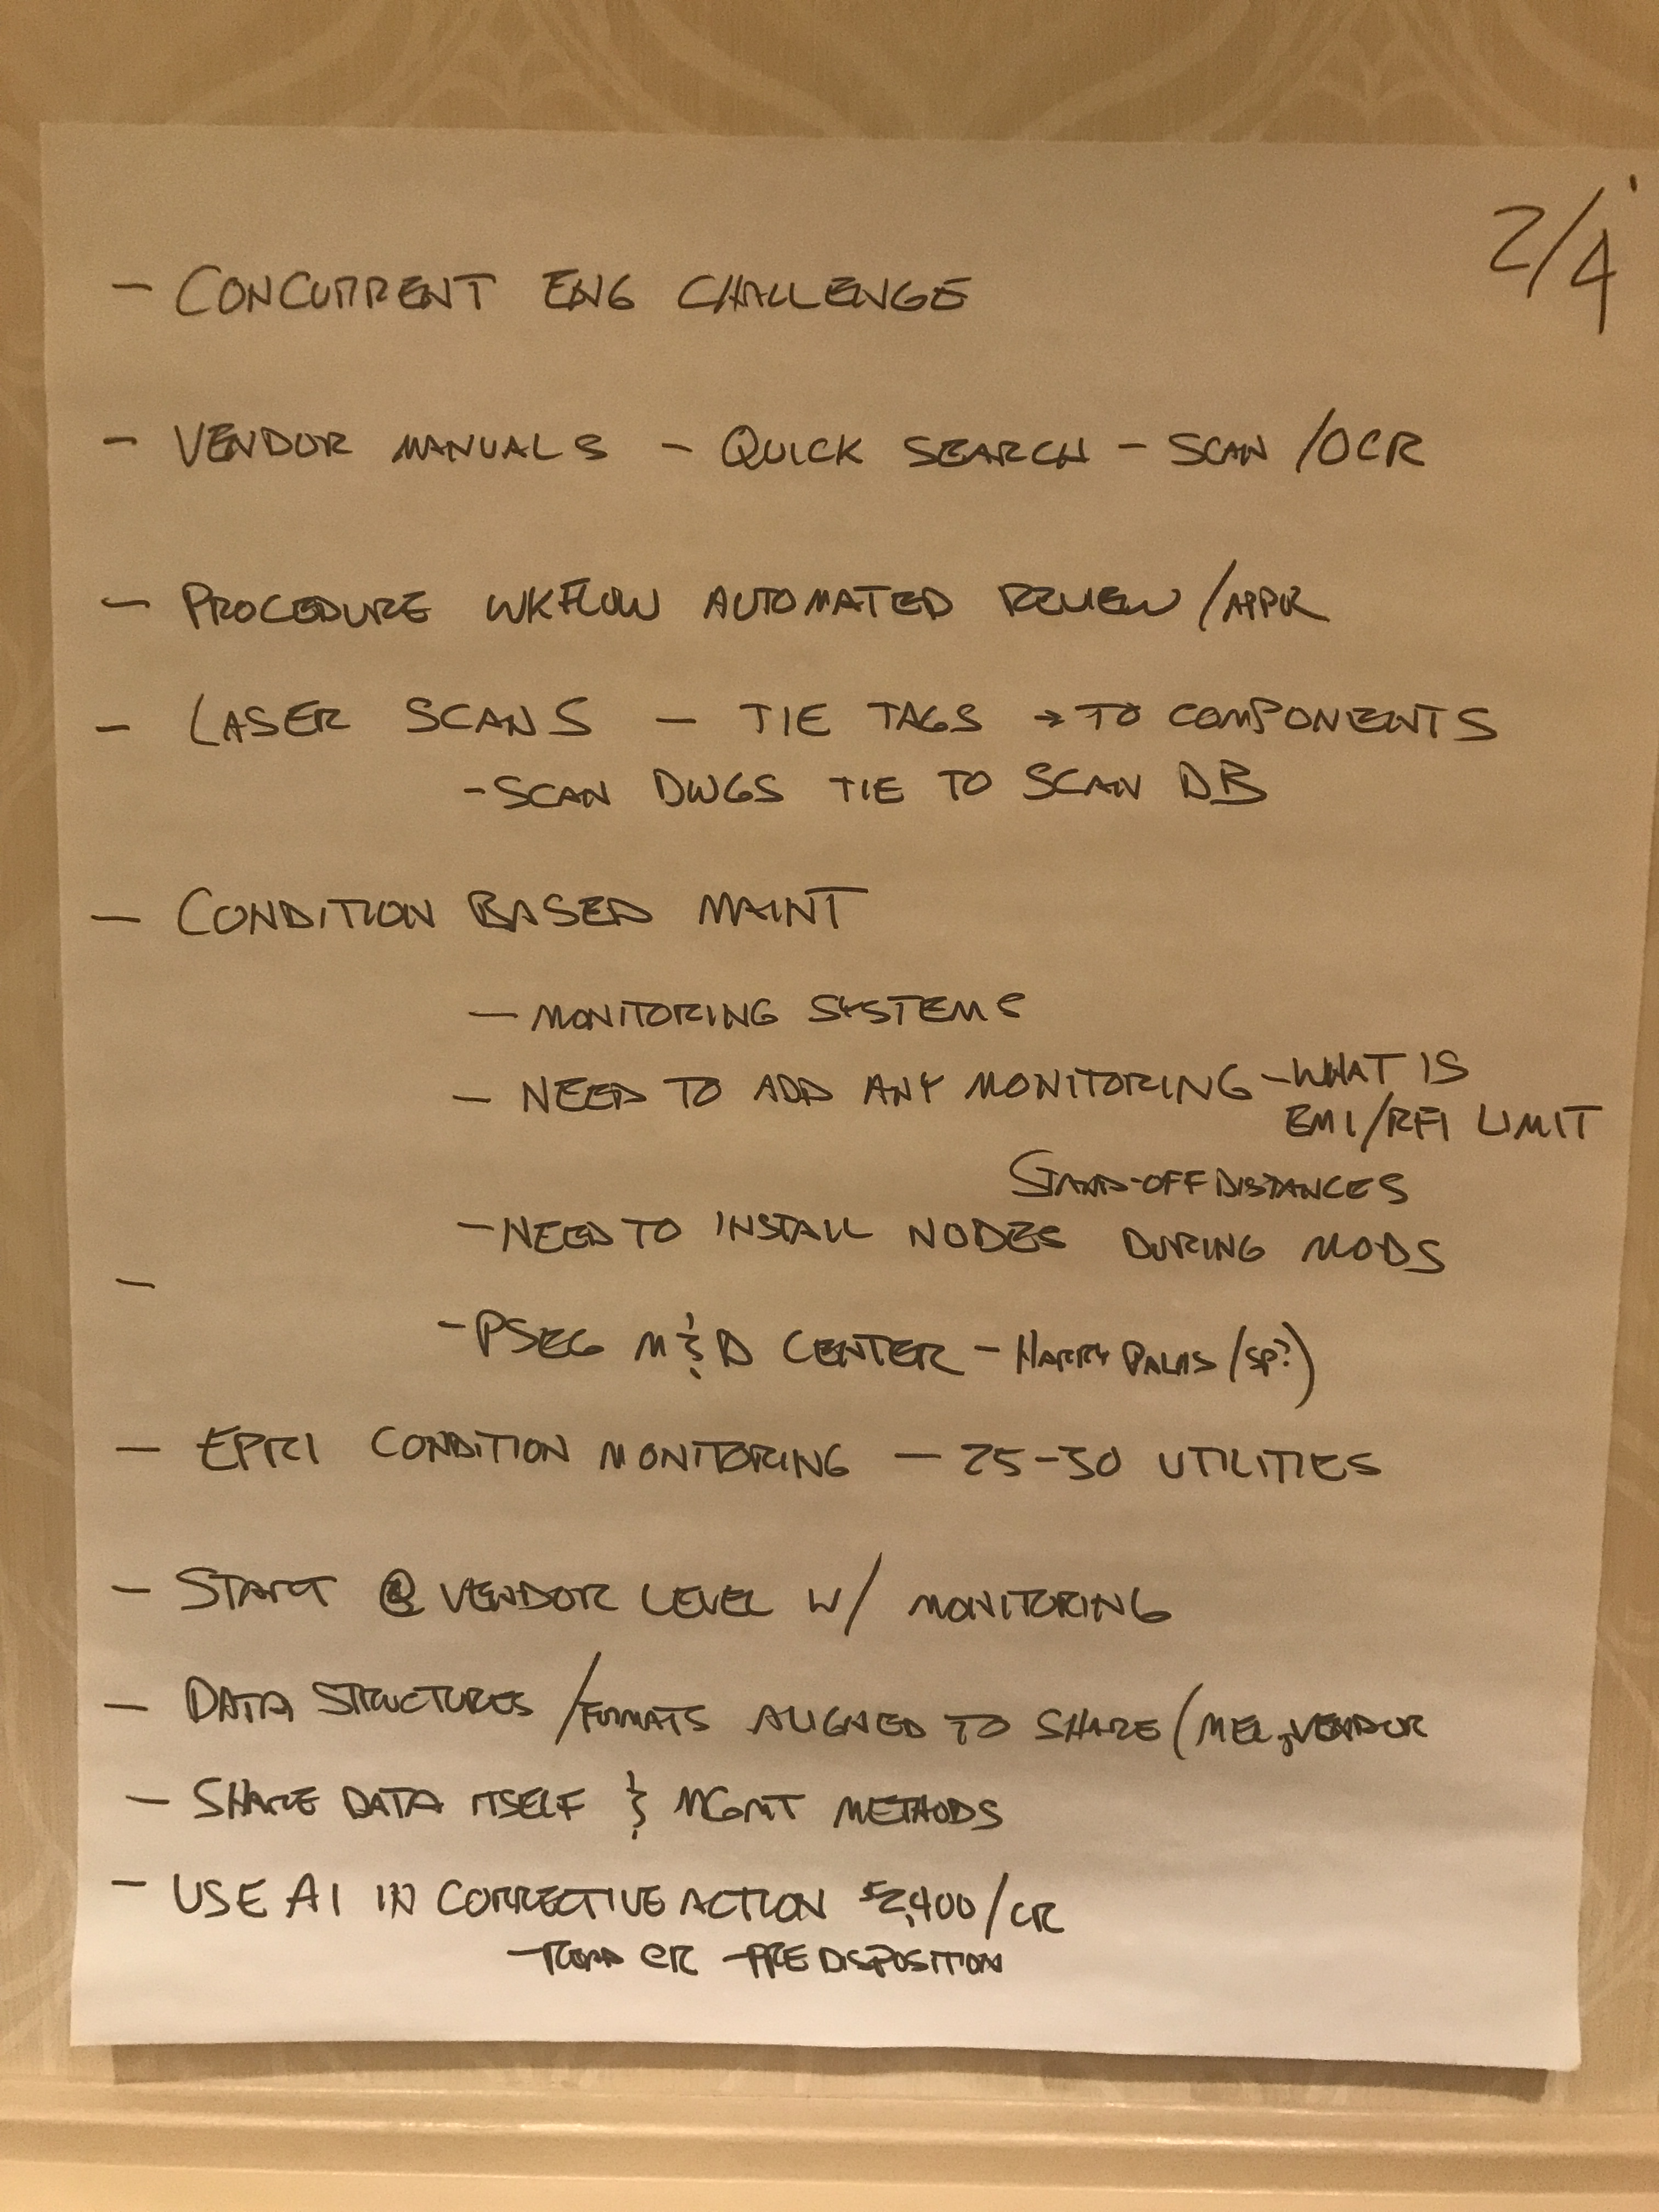 2/4
- CONCURRENT ENG CHALLENGE
- VENDOR MANUALS - QUICK SEARCH - SCAN /OCR
- PROCEDURE WKFLOW AUTOMATED REVIEW /APPR
- LASER SCANS - TIE TAGS → TO COMPONENTS
- SCAN DWGS TIE TO SCAN DB
- CONDITION BASED MAINT
- MONITORING SYSTEMS
- NEED TO ADD ANY MONITORING - WHAT IS
EMI/RFI LIMIT
STAND-OFF DISTANCES
- NEED TO INSTALL NODES DURING MODS
-
- PSEG M&D CENTER - HARRY PALAS (SP?)
- EPRI CONDITION MONITORING - 25-30 UTILITIES
- START @ VENDOR LEVEL W/ MONITORING
- DATA STRUCTURES /FORMATS ALIGNED TO SHARE (MEL, VENDOR
- SHARE DATA ITSELF & MGMT METHODS
- USE AI IN CORRECTIVE ACTION $2,400/CR
- READ CR - PRE DISPOSITION